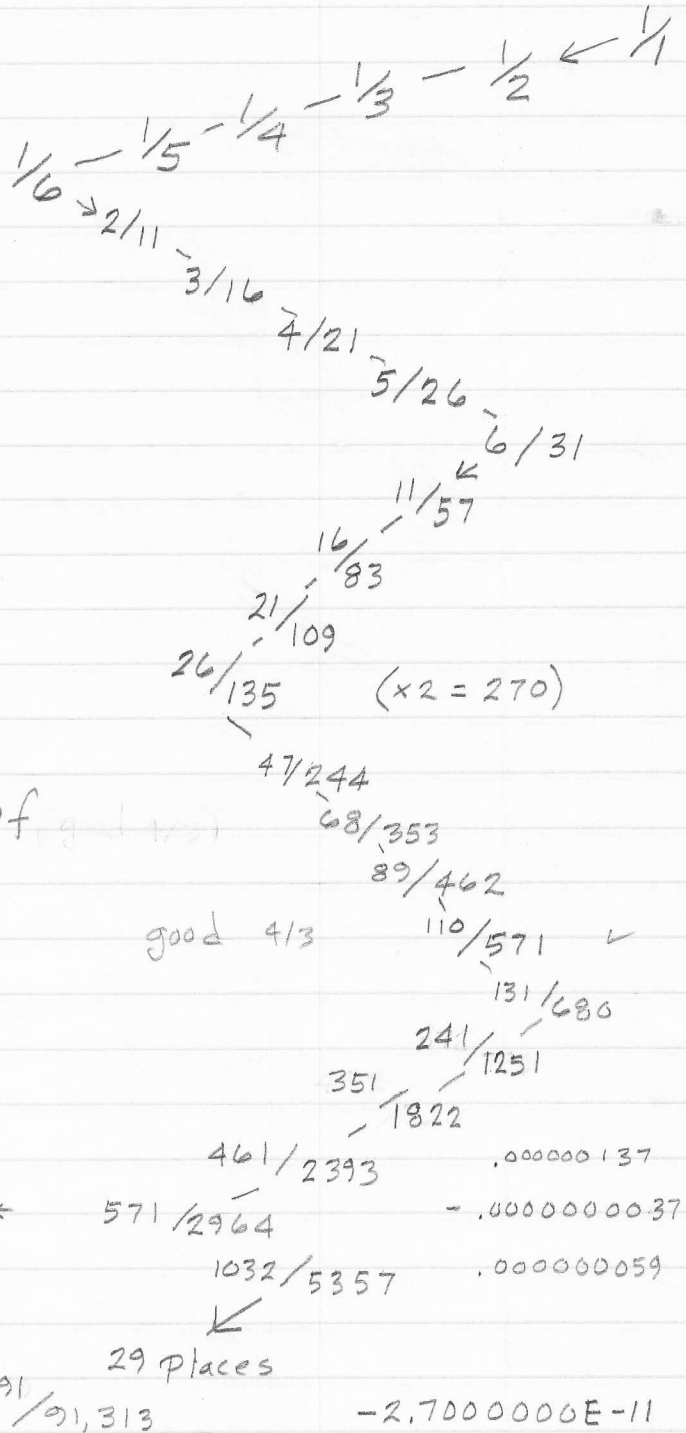 1/1
1/2
1/3
1/4
1/5
1/6
2/11
3/16
4/21
5/26
6/31
11/57
16/83
21/109
26/135 (x2 = 270)
47/244
f (good 4/3) 68/353
89/462
good 4/3 110/571 ✓
131/680
241/1251
351/1822
461/2393 .000000137
571/2964 - .0000000037
1032/5357 .000000059
29 places
91/91,313 -2.7000000E-11